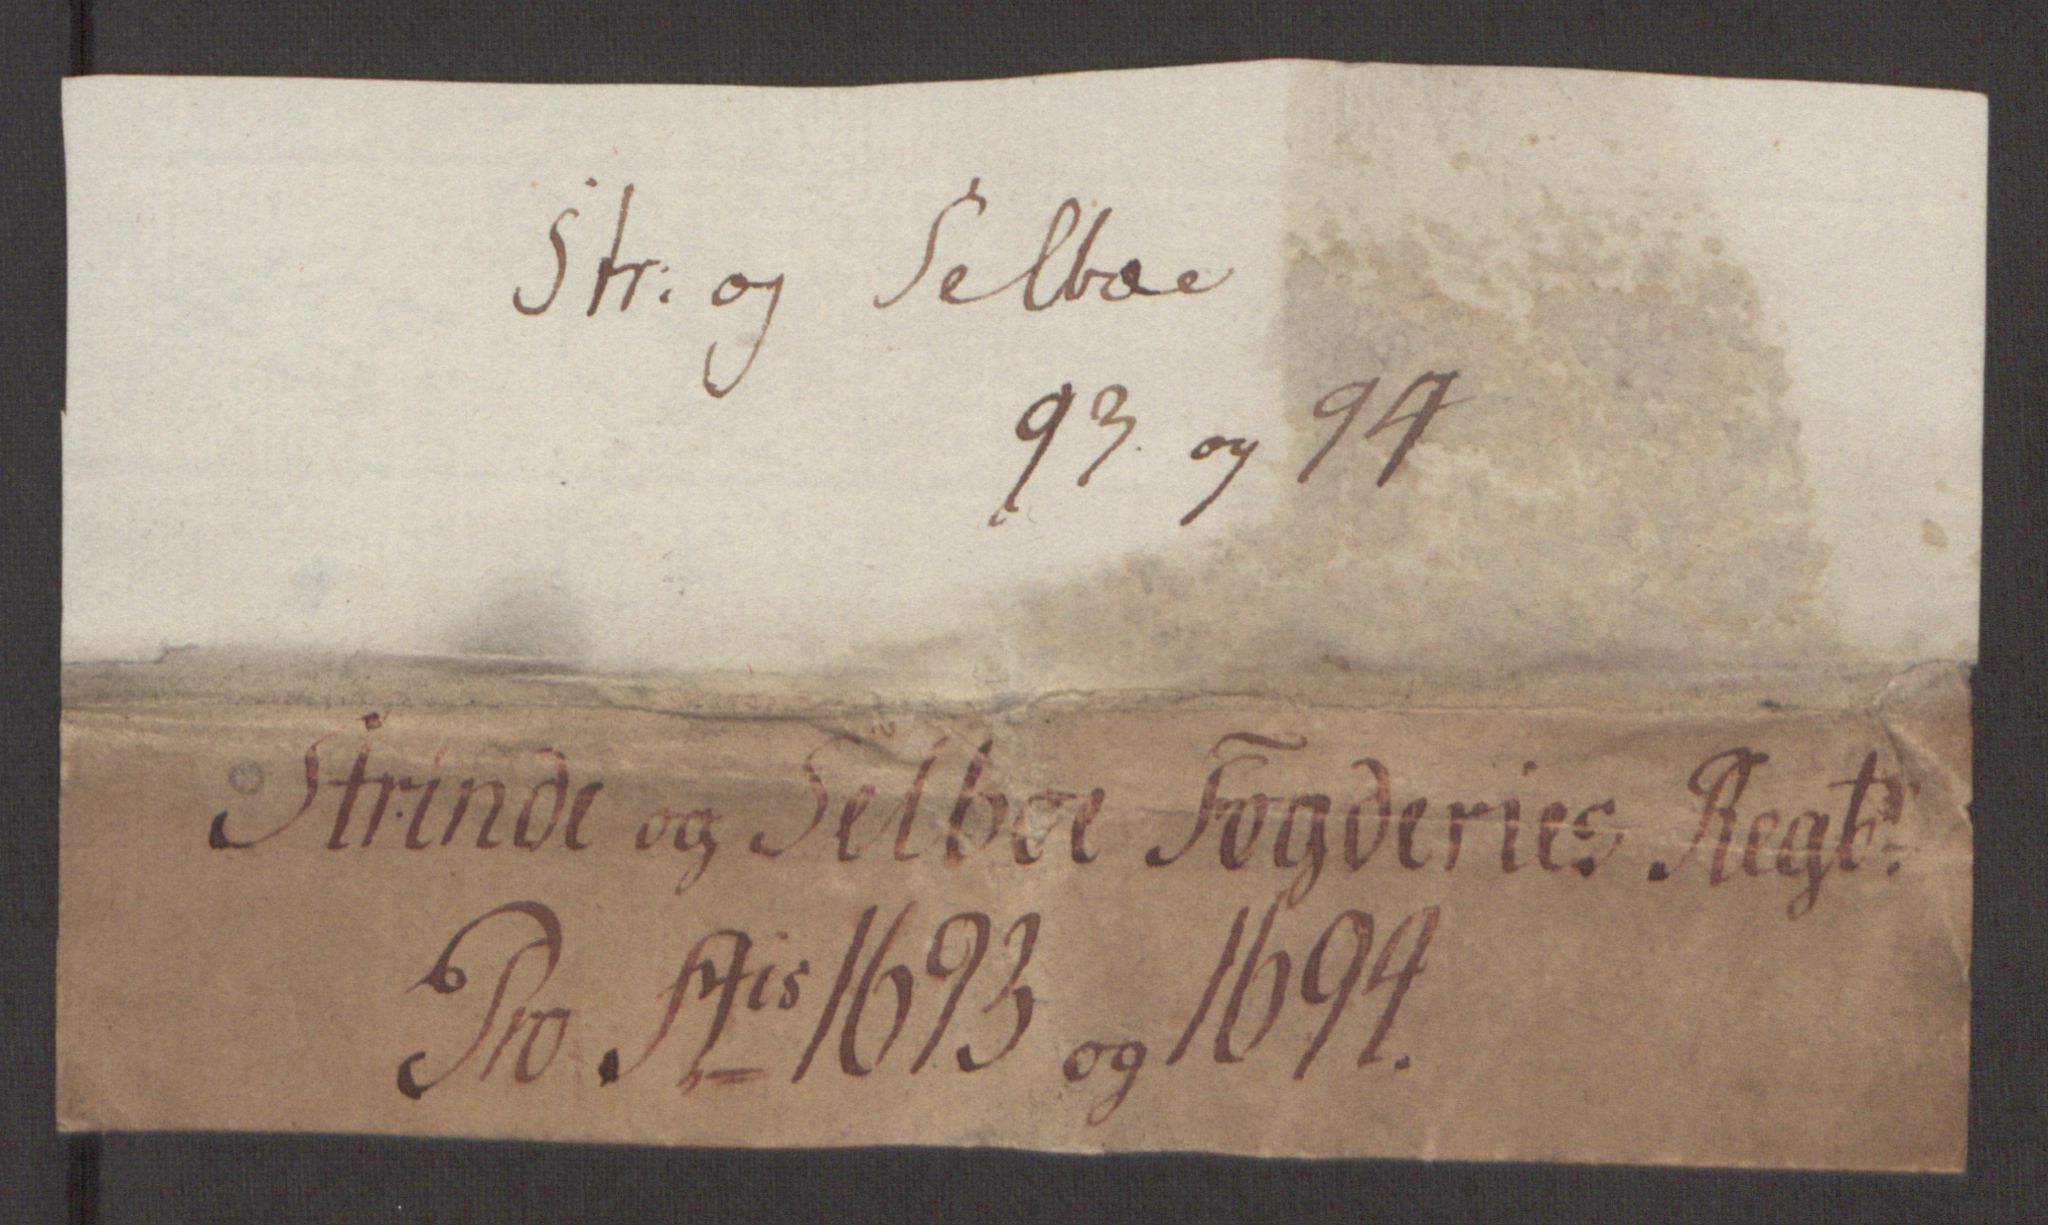 Str: og Selboe
93 og 94
Strinde og Selboe Fogderies Regbr:
Pro Ais 1693 og 1694.